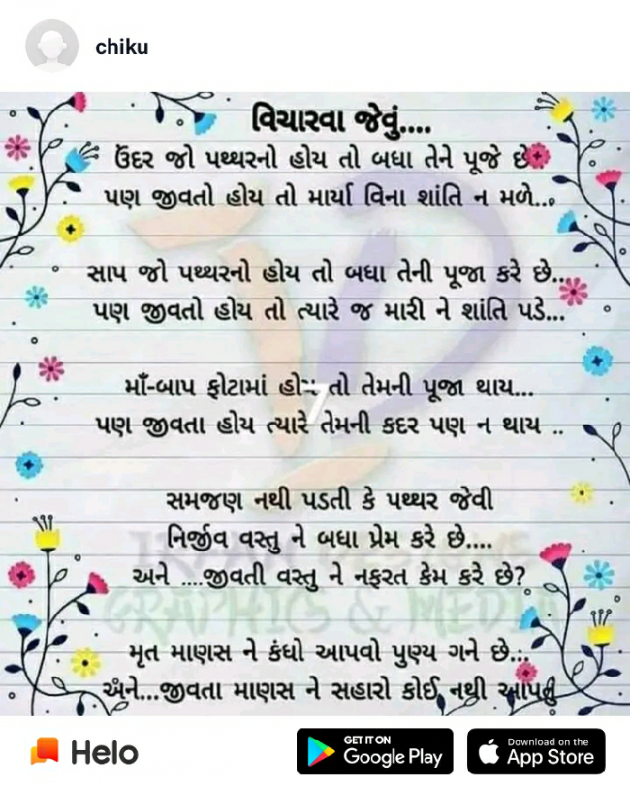 chiku
વિચારવા જેવું....
ઉંદર જો પથ્થરનો હોય તો બધા તેને પૂજે છે
પણ જીવતો હોય તો માર્યા વિના શાંતિ ન મળે...
સાપ જો પથ્થરનો હોય તો બધા તેની પૂજા કરે છે...
પણ જીવતો હોય તો ત્યારે જ મારી ને શાંતિ પડે...
માઁ-બાપ ફોટામાં હોય તો તેમની પૂજા થાય...
પણ જીવતા હોય ત્યારે તેમની કદર પણ ન થાય ..
સમજણ નથી પડતી કે પથ્થર જેવી
નિર્જીવ વસ્તુ ને બધા પ્રેમ કરે છે....
અને ....જીવતી વસ્તુ ને નફરત કેમ કરે છે?
GRAPHICS & MEDIA
મૃત માણસ ને કંધો આપવો પુણ્ય ગને છે...
અને...જીવતા માણસ ને સહારો કોઈ નથી આપતું
Helo
GET IT ON
Google Play
Download on the
App Store